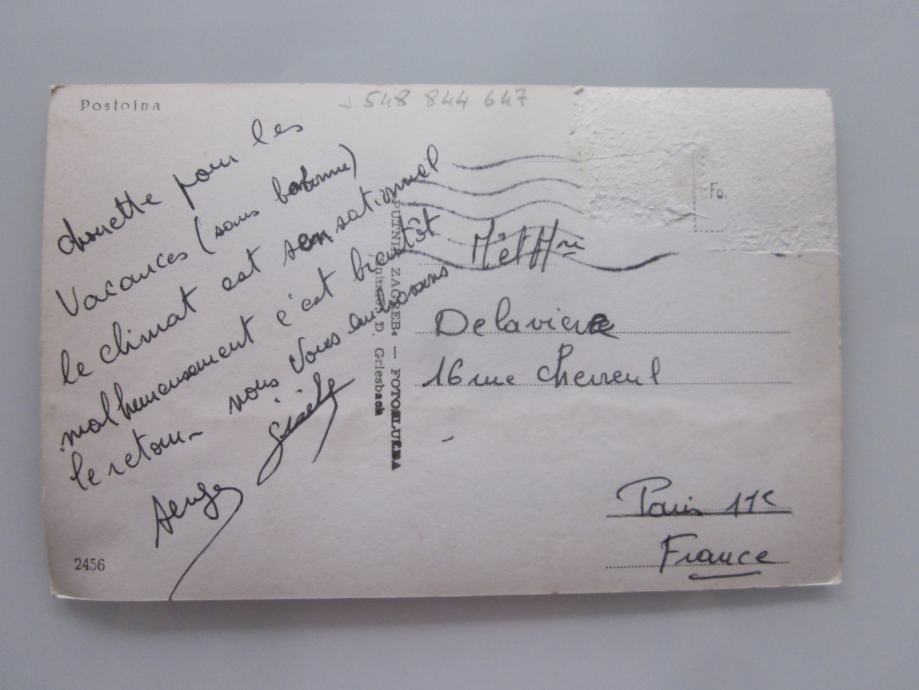 Postojna
548 844 647
chouette pour les
Vacances (sans barbonne)
le climat est sensationnel
malheureusement c'est bientôt
le retour nous vous embrassons
Serge Gisèle
2456
PUTNIK ZAGREB. — FOTO
D. Griesbach
Fo.
M et Mme
Delaviere
16 rue Chevreul
Paris 11e
France